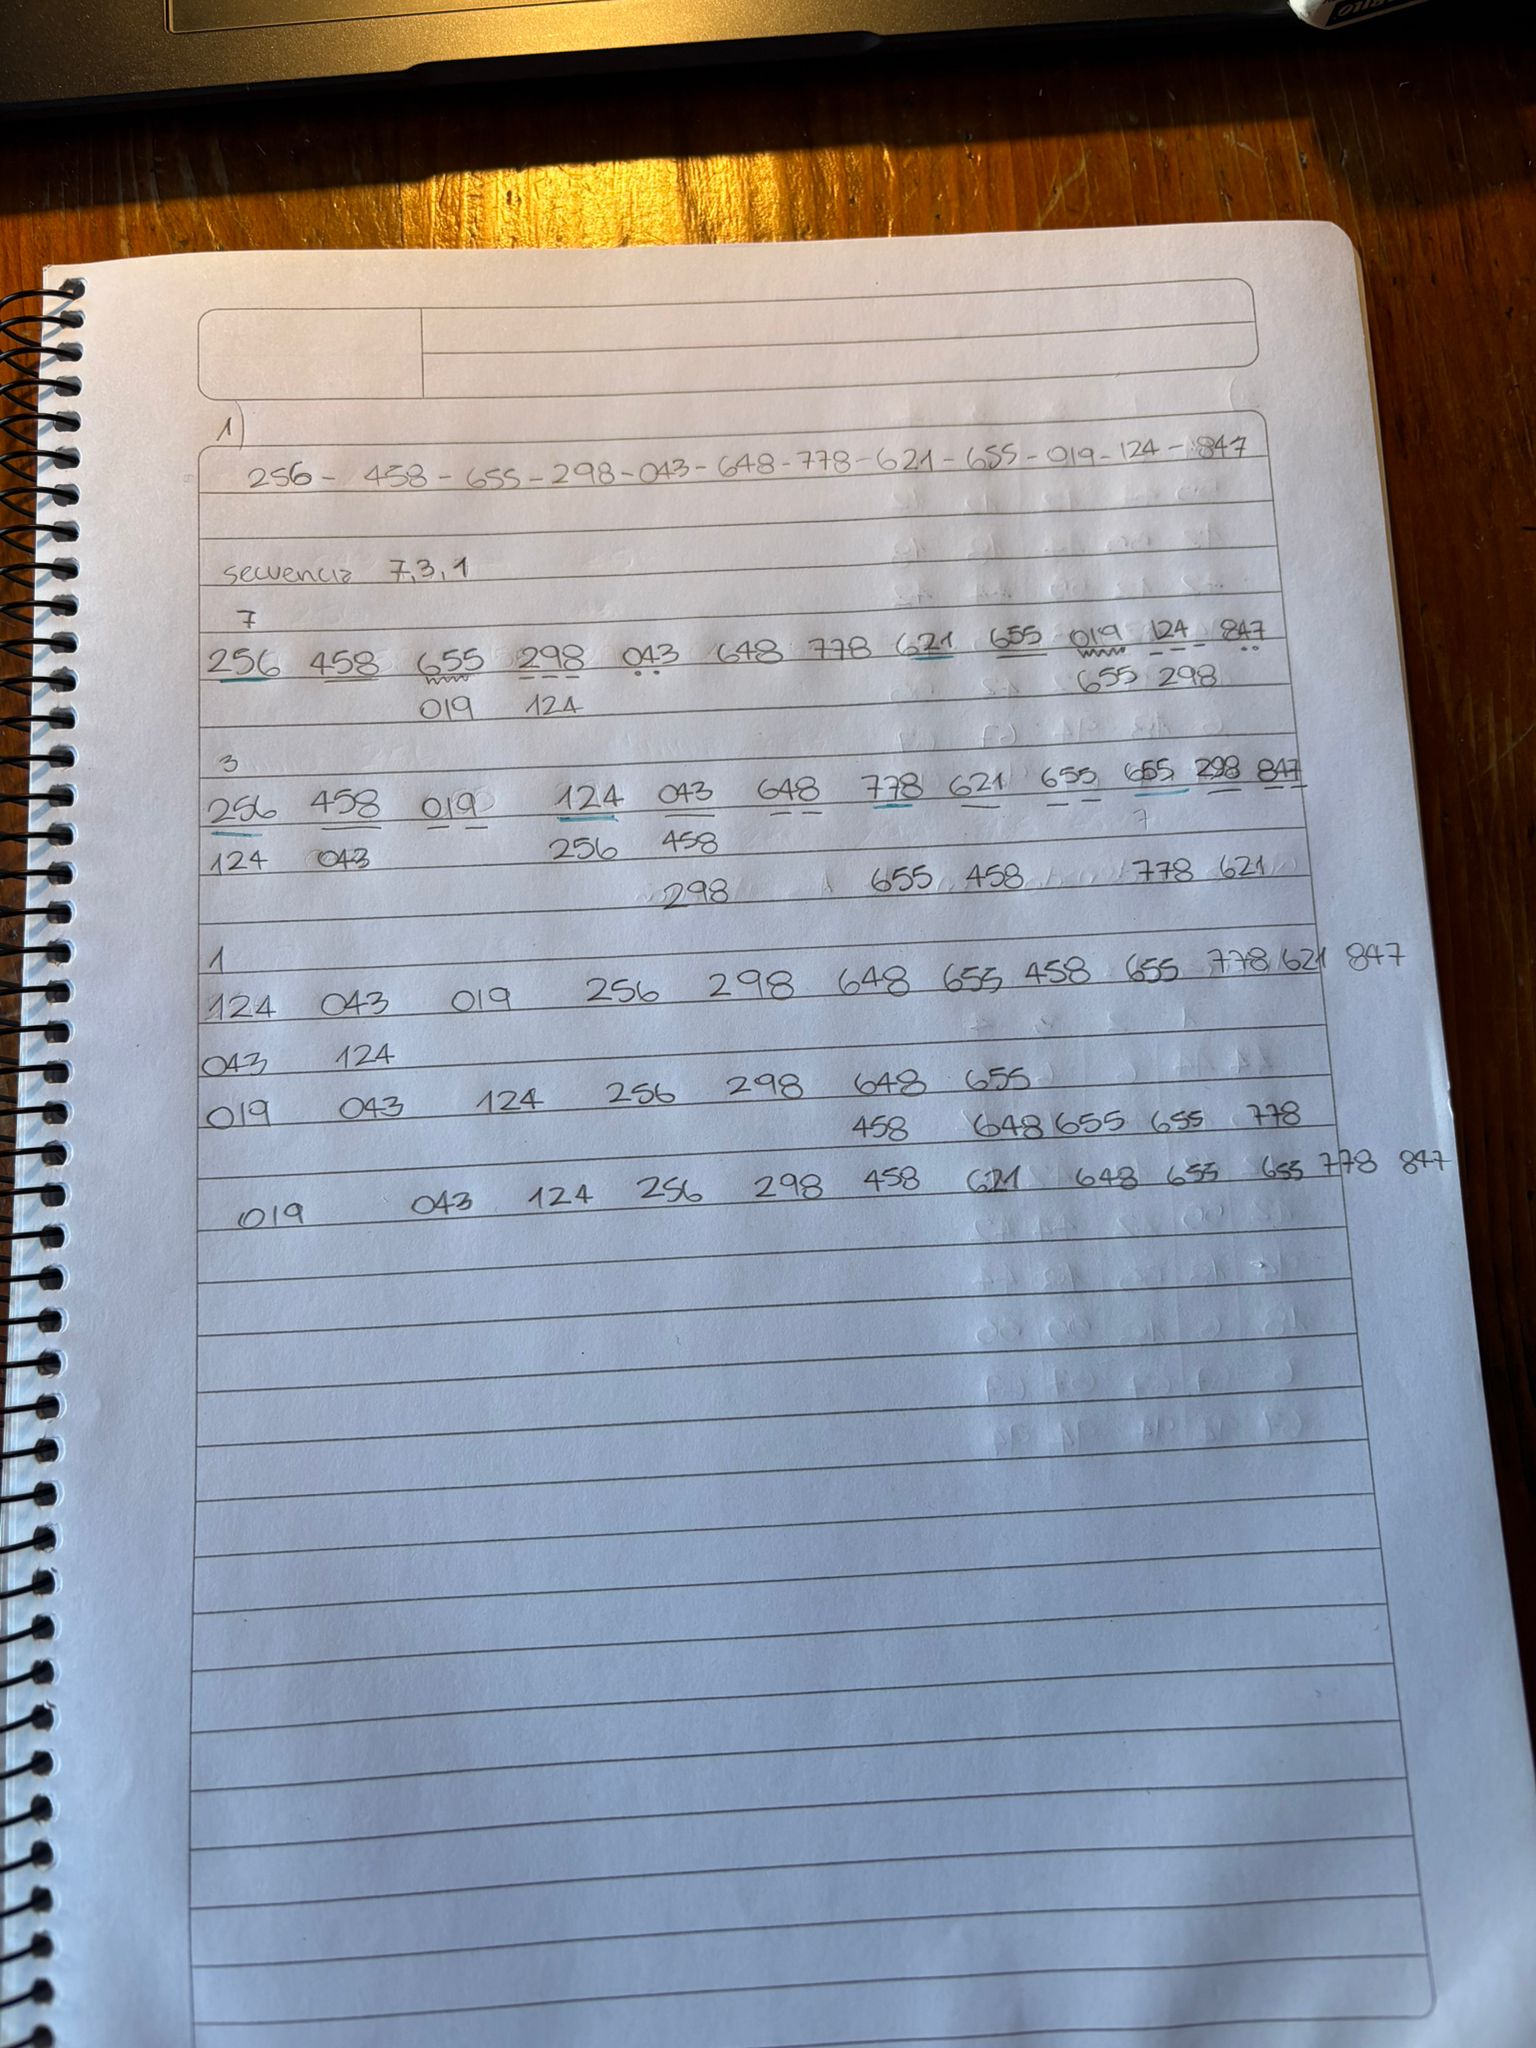 1)
256 - 458 - 655 - 298 - 043 - 648 - 778 - 621 - 655 - 019 - 124 - 847
secuencia 7,3,1
7
256 458 655 298 043 648 778 621 655 019 124 847
655 298
019 124
3
256 458 019 124 043 648 778 621 655 655 298 847
124 043 256 458
298 655 458 778 621
1
124 043 019 256 298 648 655 458 655 778 621 847
043 124
019 043 124 256 298 648 655
458 648 655 655 778
019 043 124 256 298 458 621 648 655 655 778 847